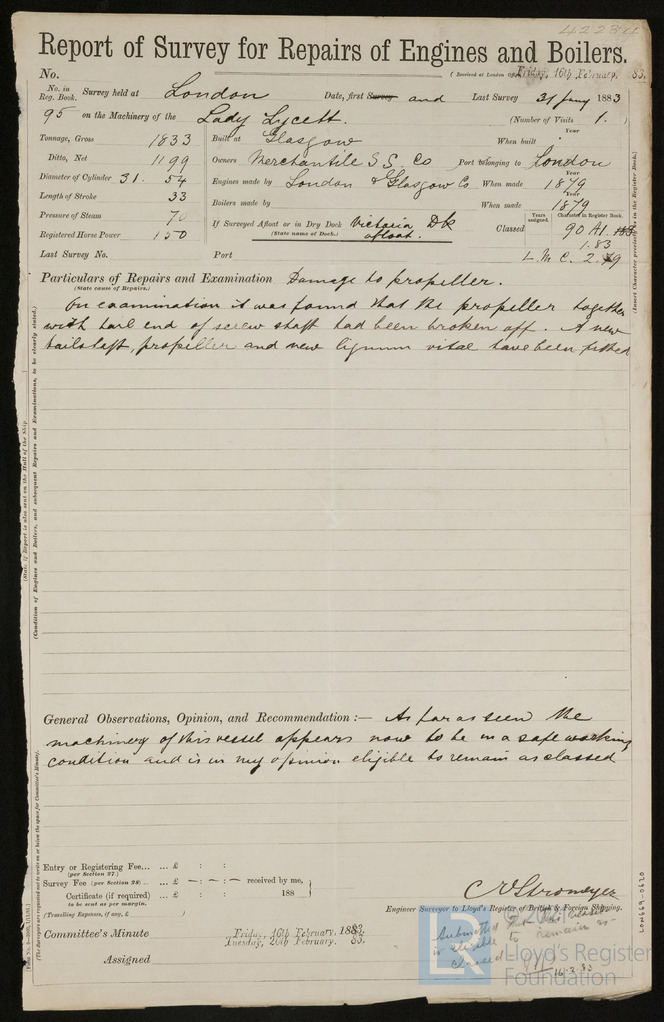 Report of Survey for Repairs of Engines and Boilers.
No.
(Received at London Office Friday, 16th February. 83.
No. in Reg. Book. Survey held at London Date, first Survey and Last Survey 31 Jany 1883
95 on the Machinery of the Lady Lycett. (Number of Visits 1.)
Tonnage, Gross 1833 Built at Glasgow When built Year
Ditto, Net 1199 Owners Merchantile S S. Co Port belonging to London
Diameter of Cylinder 31. 54 Engines made by London & Glasgow Co. When made Year 1879
Length of Stroke 33 Boilers made by When made Year 1879
Pressure of Steam 70 If Surveyed Afloat or in Dry Dock Victoria Dk afloat.
(State name of Dock.)
Classed Years assigned. Character in Register Book. 90 A1.
1.83
Registered Horse Power 150
Last Survey No. Port L. M. C. 2.79
Particulars of Repairs and Examination Damage to propeller.
(State cause of Repairs.)
On examination it was found that the propeller together
with tail end of screw shaft had been broken off. A new
tailshaft, propeller and new lignum vitae have been fitted
General Observations, Opinion, and Recommendation :— As far as seen the
machinery of this vessel appears now to be in a safe working
condition and is in my opinion eligible to remain as classed
Entry or Registering Fee... ... £ : :
(per Section 27.)
Survey Fee (per Section 28) .. ... £ — : — : — received by me,
Certificate (if required) ... £ : : 188
to be sent as per margin.
(Travelling Expenses, if any, £ )
C E Stromeyer
Engineer Surveyor to Lloyd's Register of British & Foreign Shipping.
Committee's Minute Friday, 16th February. 1883.
Tuesday, 20th February. 83.
Assigned
Submitted that this vessel
is eligible to remain as
classed
16.2.83
LR
Lloyd's Register
Foundation
LON669-0620
(State if Report is also sent on the Hull of the Ship
(Condition of Engines and Boilers, and subsequent Repairs and Examinations, to be clearly stated.)
(The Surveyors are requested not to write on or below the space for Committee's Minute.)